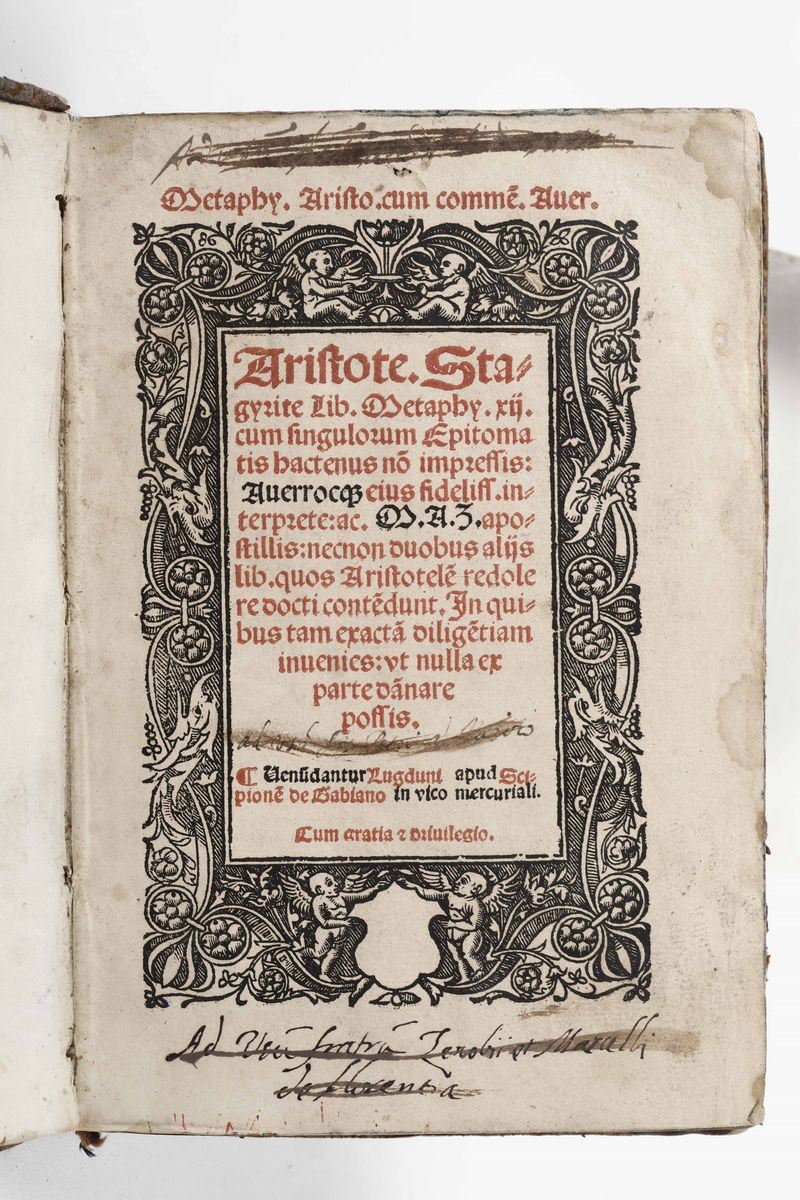 Ad
Metaphy. Aristo.cum commē. Auer.
Aristote. Sta⸗
gyrite Lib. Metaphy. xij.
cum singulorum Epitoma
tis hactenus nō impressis:
Auerrocꝙ eius fideliss.in⸗
terprete:ac. M.A.Z.apo⸗
stillis:necnon duobus alijs
lib.quos Aristotelē redole
re docti contēdunt. In qui⸗
bus tam exactā diligētiam
inuenies:vt nulla ex
parte dānare
possis.
¶ Uenūdantur Lugduni apud Sci⸗
pionē de Gabiano in vico mercuriali.
Cum gratia ⁊ priuilegio.
Ad Vsū fratrū Zenobii et Marcelli
de florentia